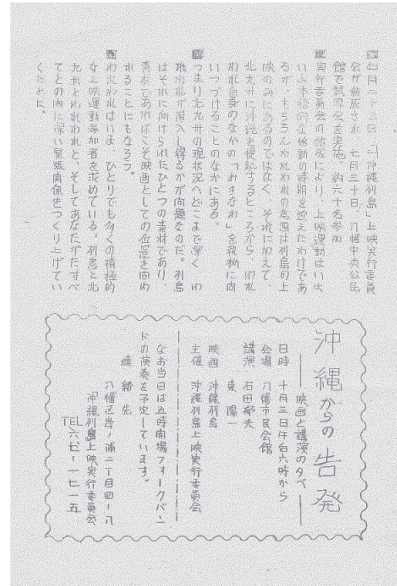 七月二十三日、「沖縄列島」上映実行委員
会が結成され 七月三十日、八幡中央公民
館で試写会を実施。約六十名参加
実行委員会の結成により、上映運動はいよ
いよ本格的な始動の時期を迎えたわけであ
るが、もちろんわれわれの意識は列島の上
映のみに当るのではなく、それに加えて、
北九州に沖縄を
われ自身のなかの「おきなわ」を
いつづけることのなかにある。
つまり北九州の現状況へどこまで深く、わ
れわれが潜入し得るかが問題なのだ。列島
はそれに向けられたひとつの素材であり、
素材であればこそ映画としての位置を問わ
れることにもなろう。
われわれはいま、ひとりでも多くの積極的
な上映運動参加者を求めている。列島と北
九州とわれわれと、そしてあなたがたすべ
てとの間に深い緊張関係をつくり上げてい
くために。
沖縄からの告発
――映画と講演の夕べ――
日時 十月三日午后六時から
会場 八幡市民会館
講演 石田郁夫
東 陽一
映画 沖縄列島
主催 沖縄列島上映実行委員会
なお当日は五時開場フォークバン
ドの演奏を予定しています。
連絡先
八幡区
沖縄列島上映実行委員会
TEL 六七-一七一五